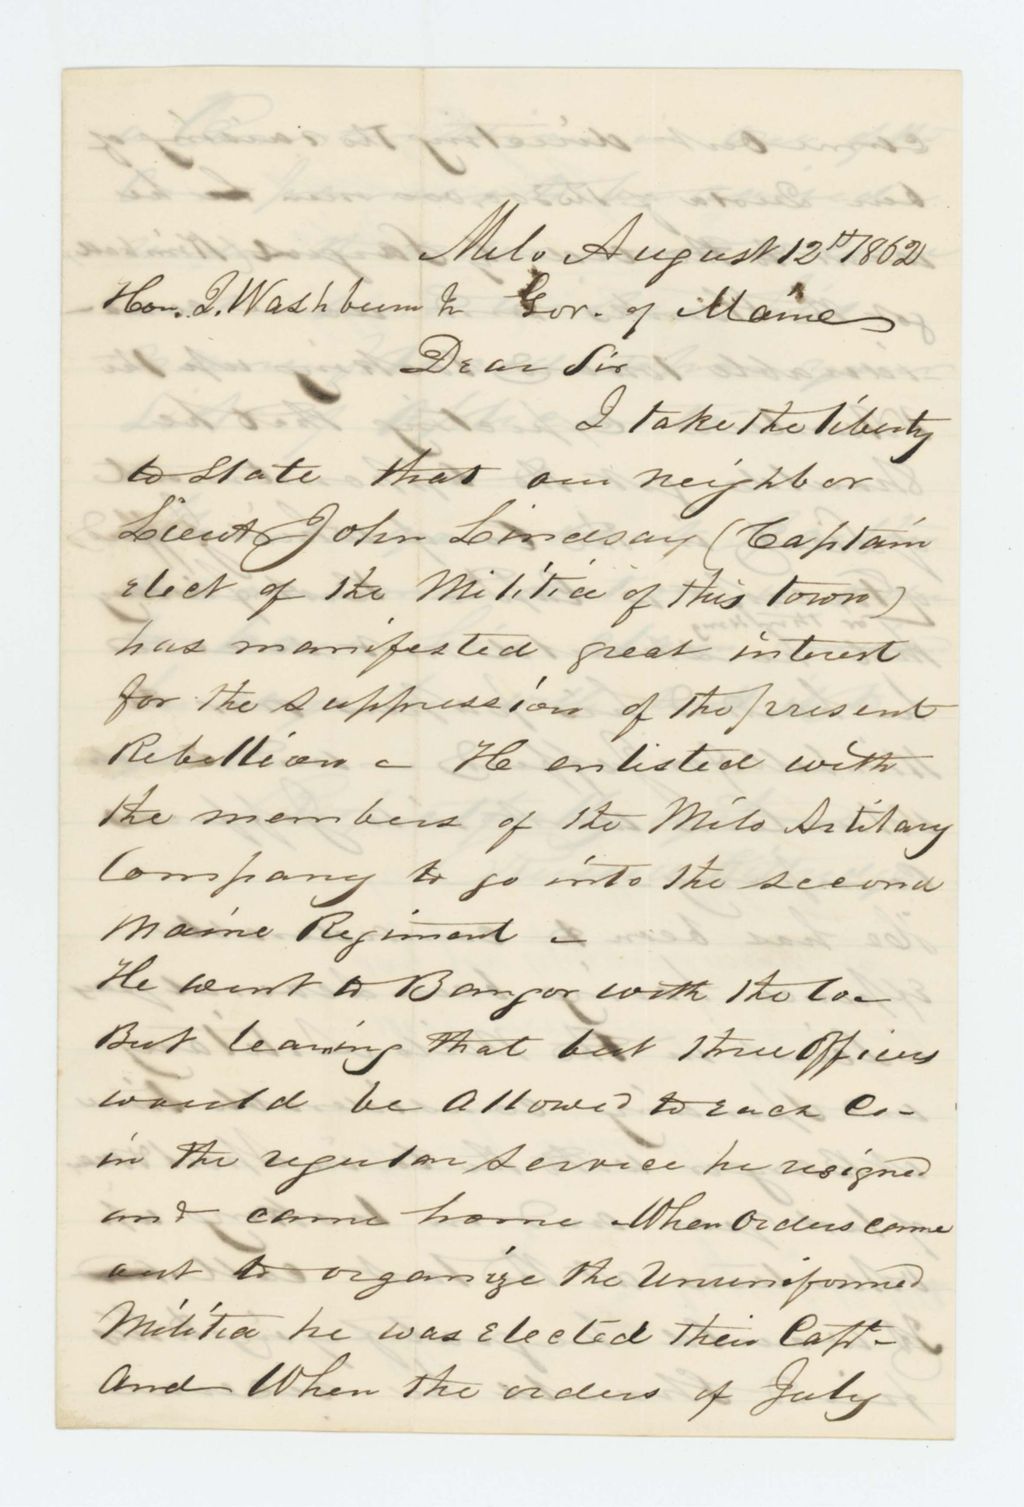 Milo August 12th 1862
Hon. I. Washburn Jr Gov. of Maine
Dear Sir
I take the liberty
to State that our neighbor
Lieut John Lindsay (Captain
elect of the Militia of this town)
has manifested great interest
for the suppression of the present
Rebellion - He enlisted with
the members of the Milo Artilary
Company to go into the second
Maine Regiment -
He went to Bangor with the Co-
But learning that but three Officers
would be allowed to each Co-
in the regular service he resigned
and came home When Orders came
out to organize the Ununiformed
Militia he was Elected their Capt-
And When the orders of July